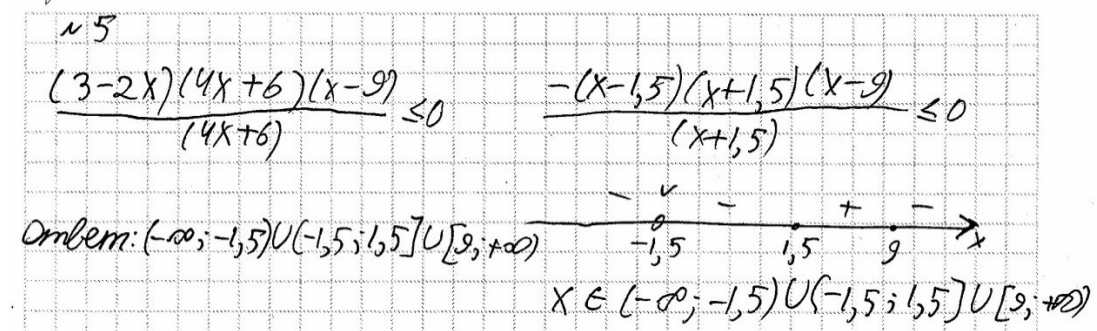 № 5
(3-2x)(4x+6)(x-9)/(4x+6) ≤0   -(x-1,5)(x+1,5)(x-9)/(x+1,5) ≤0
- v - + -
Ответ: (-∞; -1,5)∪(-1,5; 1,5]∪[9; +∞)   -1,5 1,5 9 x
x ∈ (-∞; -1,5)∪(-1,5; 1,5]∪[9; +∞)